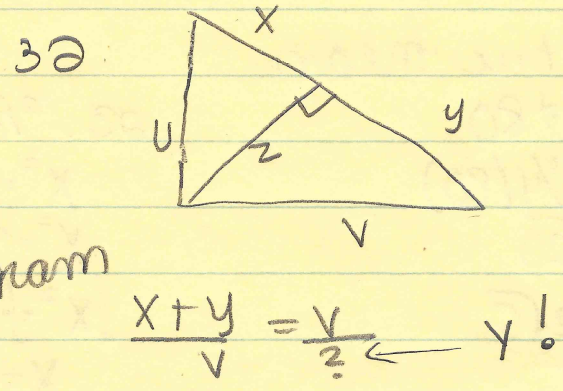 32
x
y
u
z
v
ram
x + y / v = v / ? ← y!